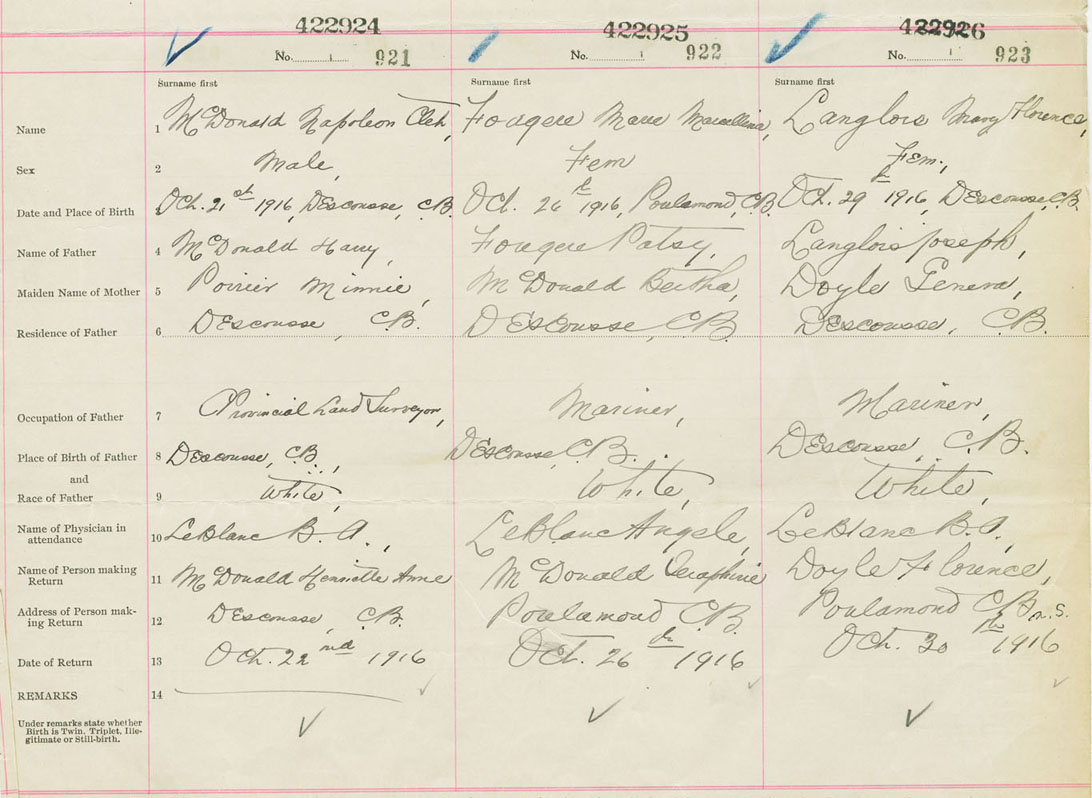 422924 422925 422926
No. 1 921 No. 1 922 No. 1 923
Surname first Surname first Surname first
Name 1 McDonald Napoleon Fougere Marie Marcellina, Langlois Mary Florence,
Sex 2 Male, Fem Fem.,
Date and Place of Birth Oct. 21st 1916, DEscousse, C.B. Oct. 26th 1916, Poulamond, C.B. Oct. 29th 1916, DEscousse, C.B.
Name of Father 4 McDonald Harry, Fougere Patsy, Langlois Joseph,
Maiden Name of Mother 5 Poirier Minnie, McDonald Bertha, Doyle Geneva,
Residence of Father 6 DEscousse, C.B. DEscousse, C.B. DEscousse, C.B.
Occupation of Father 7 Provincial Land Surveyor, Mariner, Mariner,
Place of Birth of Father 8 DEscousse, C.B., DEscousse, C.B. DEscousse, C.B.
and
Race of Father 9 White, White, White,
Name of Physician in
attendance 10 LeBlanc B. A., LeBlanc Angele, LeBlanc B.A.,
Name of Person making
Return 11 McDonald Henriette Anne McDonald Seraphine Doyle Florence,
Address of Person mak-
ing Return 12 DEscousse, C.B. Poulamond C.B. Poulamond C.B. N.S.
Date of Return 13 Oct. 22nd 1916 Oct. 26th 1916 Oct. 30th 1916
REMARKS 14
Under remarks state whether
Birth is Twin, Triplet, Ille-
gitimate or Still-birth.